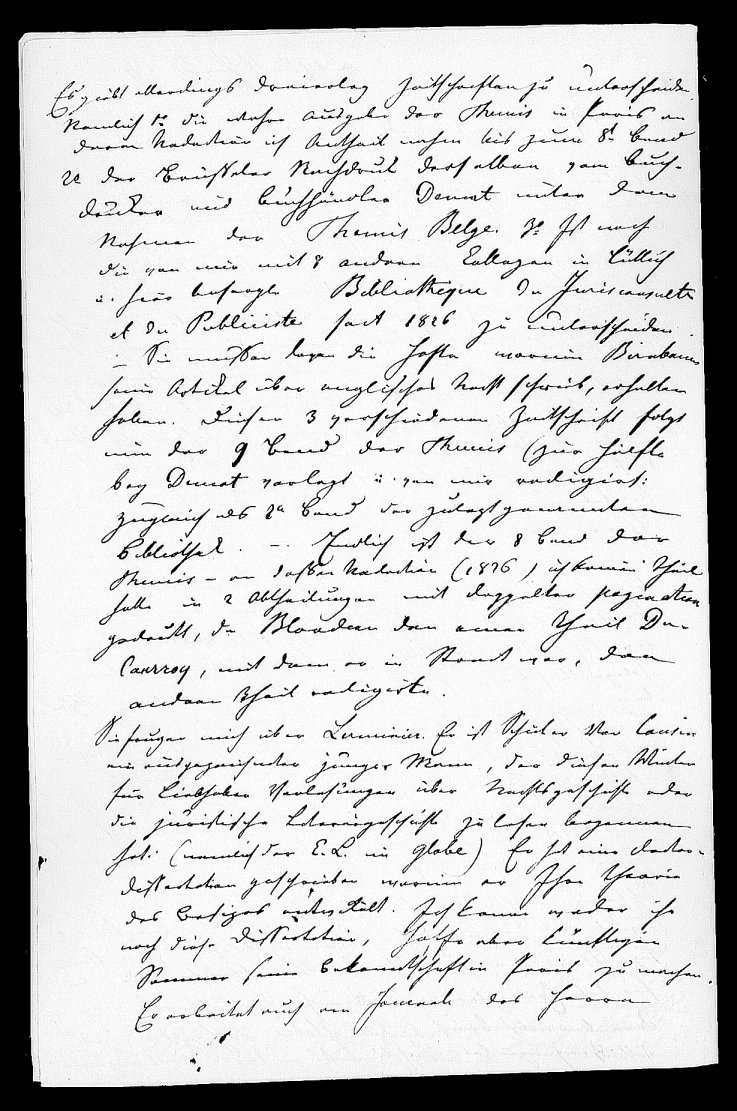 Es giebt allerdings dreierley Zeitschriften zu unterscheiden.
Nemlich 1º die wahre Ausgabe der Themis in Paris an
deren Redaction ich Antheil nahm bis zum 8t Band
2º der Brüsseler Nachdruck derselben vom Buch-
drucker und Buchhändler Demat unter dem
Nahmen der Themis Belge. 3º Ist noch
die von mir mit 8 andern Collegen in Lüttich
u. hier besorgte Bibliothèque du Jurisconsulte
et du Publiciste seit 1826 zu unterscheiden.
– Sie müssen die Hefte worinn Birnbaum
seine Artikel über englisches Recht schrieb, erhalten
haben. Diesen 3 verschiedenen Zeitschrift folgt
nun der 9 Band der Themis (zur Hälfte
bey Demat verlegt u. von mir redigirt:
zugleich als 2º Band der zuletztgenannten
Bibliothek. –. Endlich ist der 8 Band der
Themis – an dessen Redaction (1826) ich keinen Theil
hatte in 2 Abtheilungen mit doppelter pagination
gedruckt, da Blondeau den einen Theil Du-
Caurroy, mit dem er in Streit war, den
andern Theil redigirte.
Sie fragen mich über Lerminier. Er ist Schüler von Cousin
ein ausgezeichneter junger Mann, der diesen Winter
für Liebhaber Vorlesungen über Rechtsgeschichte oder
die juristische Literärgeschichte zu lesen begonnen
hat: (nemlich der E. L. im Globe) Er hat eine Doctor-
dissertation geschrieben worinn er Ihre Theorie
des Besitzes entwickelt. Ich kenne weder ihn
noch diese Dissertation, hoffe aber künftigen
Sommer seine Bekanntschaft in Paris zu machen.
Er arbeitet auch am Journale des Herrn